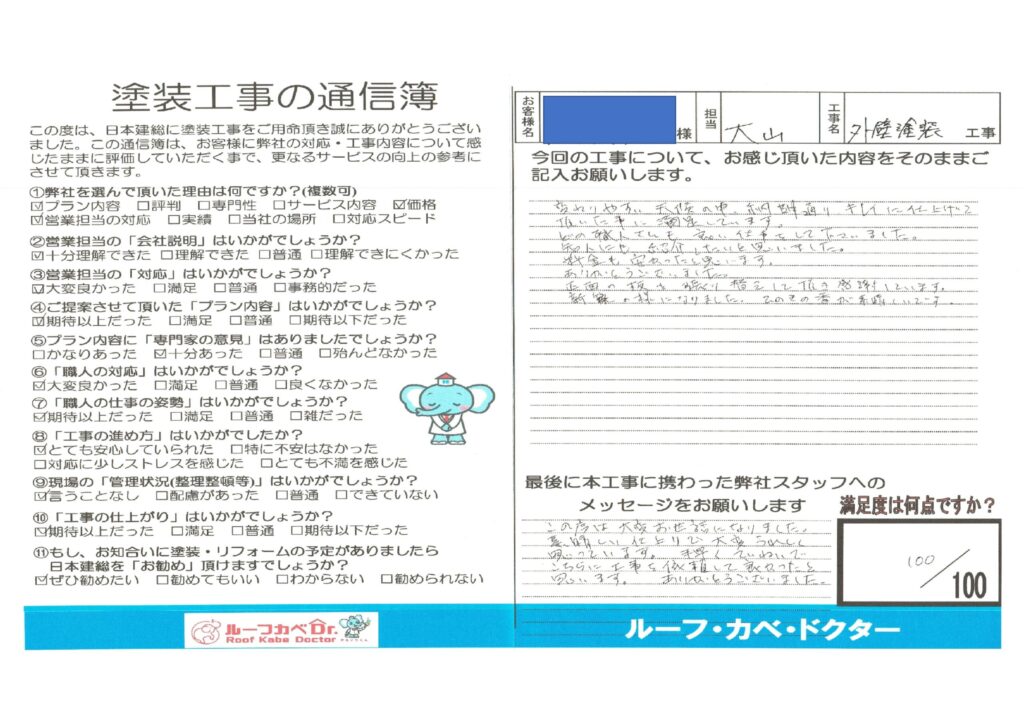 塗装工事の通信簿
この度は、日本建総に塗装工事をご用命頂き誠にありがとうござい
ました。この通信簿は、お客様に弊社の対応・工事内容について感
じたままに評価していただく事で、更なるサービスの向上の参考に
させて頂きます。
①弊社を選んで頂いた理由は何ですか?(複数可)
☑プラン内容 □評判 □専門性 □サービス内容 ☑価格
☑営業担当の対応 □実績 □当社の場所 □対応スピード
②営業担当の「会社説明」はいかがでしょうか?
☑十分理解できた □理解できた □普通 □理解できにくかった
③営業担当の「対応」はいかがでしょうか?
☑大変良かった □満足 □普通 □事務的だった
④ご提案させて頂いた「プラン内容」はいかがでしょうか?
☑期待以上だった □満足 □普通 □期待以下だった
⑤プラン内容に「専門家の意見」はありましたでしょうか?
□かなりあった ☑十分あった □普通 □殆んどなかった
⑥「職人の対応」はいかがでしょうか?
☑大変良かった □満足 □普通 □良くなかった
⑦「職人の仕事の姿勢」はいかがでしょうか?
☑期待以上だった □満足 □普通 □雑だった
⑧「工事の進め方」はいかがでしたか?
☑とても安心していられた □特に不安はなかった
□対応に少しストレスを感じた □とても不満を感じた
⑨現場の「管理状況(整理整頓等)」はいかがでしょうか?
☑言うことなし □配慮があった □普通 □できていない
⑩「工事の仕上がり」はいかがでしょうか?
☑期待以上だった □満足 □普通 □期待以下だった
⑪もし、お知合いに塗装・リフォームの予定がありましたら
日本建総を「お勧め」頂けますでしょうか?
☑ぜひ勧めたい □勧めてもいい □わからない □勧められない
ルーフカベDr.
Roof Kabe Doctor
お客様名 様 担当 大山 工事名 外壁塗装 工事
今回の工事について、お感じ頂いた内容をそのままご
記入お願いします。
変わりやすい天候の中、納期通り キレイに仕上げて
頂いた事に満足しています。
どの職人さんも 良い仕事をして下さいました。
知人にも 紹介したいと思いました。
料金も安かったと思います。
ありがとうございました。
正面の板を張り替えして頂き感謝しています。
新築の様になりました。
最後に本工事に携わった弊社スタッフへの
メッセージをお願いします
この度は大変お世話になりました。
素晴しい仕上りで大変うれしく
思っています。 手際よく ていねいで
こちらに工事を依頼して良かったと
思います。 ありがとうございました。
満足度は何点ですか?
100/100
ルーフ・カベ・ドクター